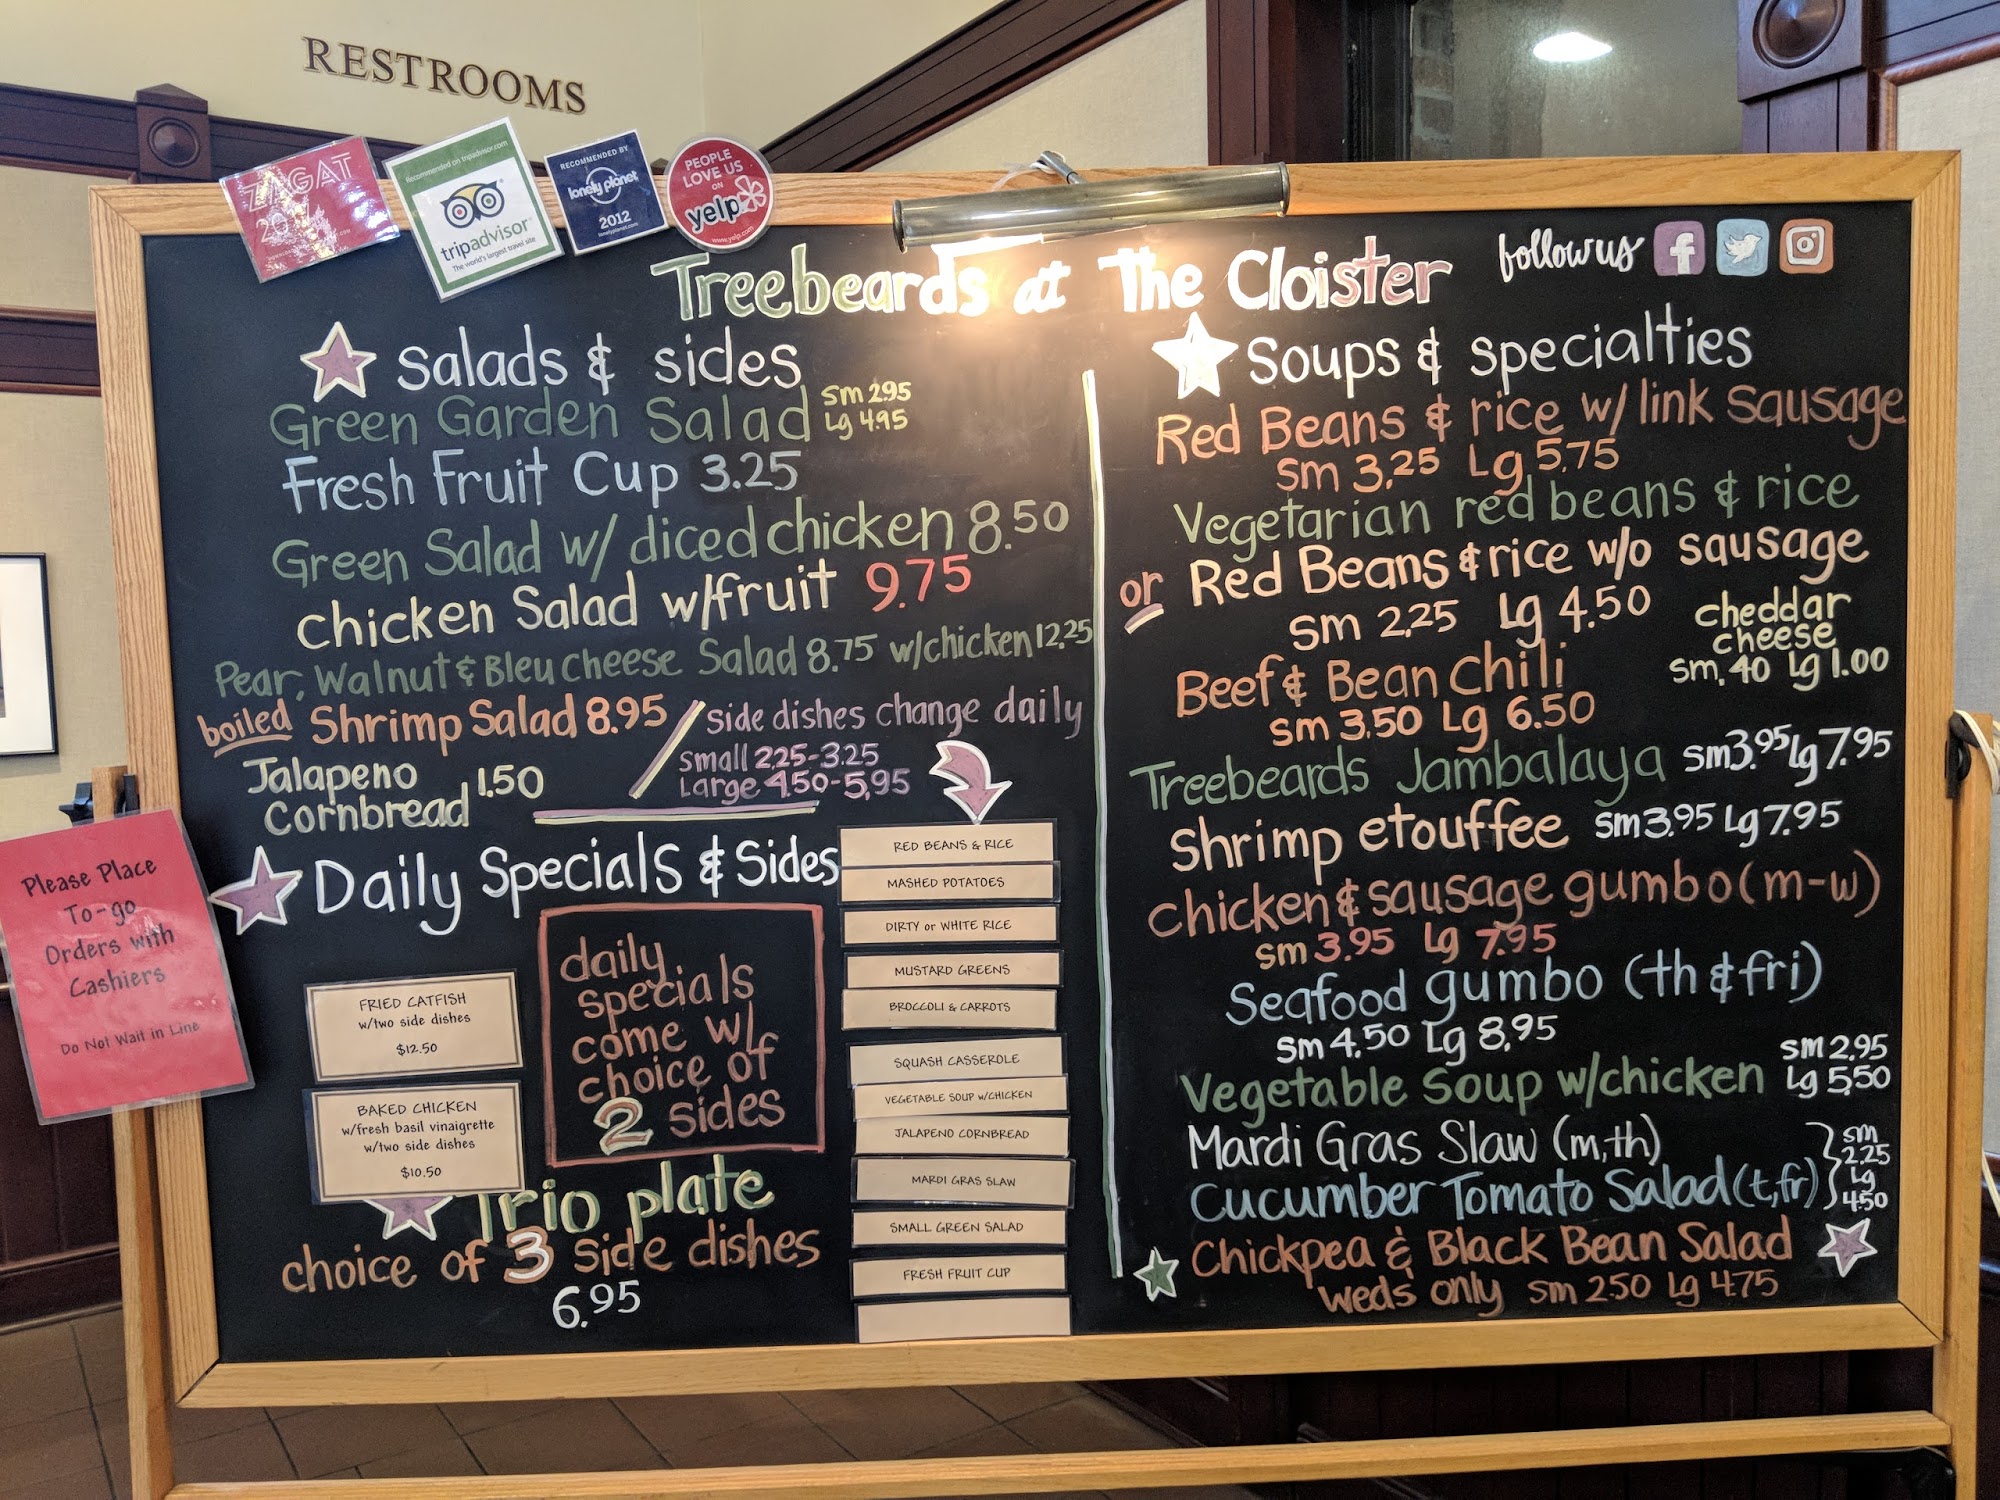 RESTROOMS
ZAGAT
Recommended on tripadvisor.com
tripadvisor
The world's largest travel site
RECOMMENDED BY
lonely planet
2012
lonelyplanet.com
PEOPLE
LOVE US
ON
yelp
www.yelp.com
Treebeards at The Cloister
follow us
Salads & sides
Green Garden Salad sm 2.95
Lg 4.95
Fresh Fruit Cup 3.25
Green Salad w/ diced chicken 8.50
chicken Salad w/fruit 9.75
Pear, Walnut & Bleu Cheese Salad 8.75 w/chicken 12.25
boiled Shrimp Salad 8.95
Jalapeno
Cornbread 1.50
side dishes change daily
small 2.25-3.25
Large 4.50-5.95
Daily Specials & Sides
FRIED CATFISH
w/two side dishes
$12.50
BAKED CHICKEN
w/fresh basil vinaigrette
w/two side dishes
$10.50
daily
specials
come w/
choice of
2 sides
Trio plate
choice of 3 side dishes
6.95
RED BEANS & RICE
MASHED POTATOES
DIRTY or WHITE RICE
MUSTARD GREENS
BROCCOLI & CARROTS
SQUASH CASSEROLE
VEGETABLE SOUP w/CHICKEN
JALAPENO CORNBREAD
MARDI GRAS SLAW
SMALL GREEN SALAD
FRESH FRUIT CUP
Soups & specialties
Red Beans & rice w/ link sausage
sm 3.25 Lg 5.75
Vegetarian red beans & rice
or Red Beans & rice w/o sausage
sm 2.25 Lg 4.50
cheddar
cheese
sm .40 Lg 1.00
Beef & Bean Chili
sm 3.50 Lg 6.50
Treebeards Jambalaya sm 3.95 Lg 7.95
Shrimp etouffee sm 3.95 Lg 7.95
chicken & sausage gumbo (m-w)
sm 3.95 Lg 7.95
Seafood gumbo (th & fri)
sm 4.50 Lg 8.95
Vegetable Soup w/chicken sm 2.95
Lg 5.50
Mardi Gras Slaw (m,th)
Cucumber Tomato Salad (t,fr)
sm
2.25
Lg
4.50
Chickpea & Black Bean Salad
weds only sm 2.50 Lg 4.75
Please Place
To-go
Orders with
Cashiers
Do Not Wait in Line